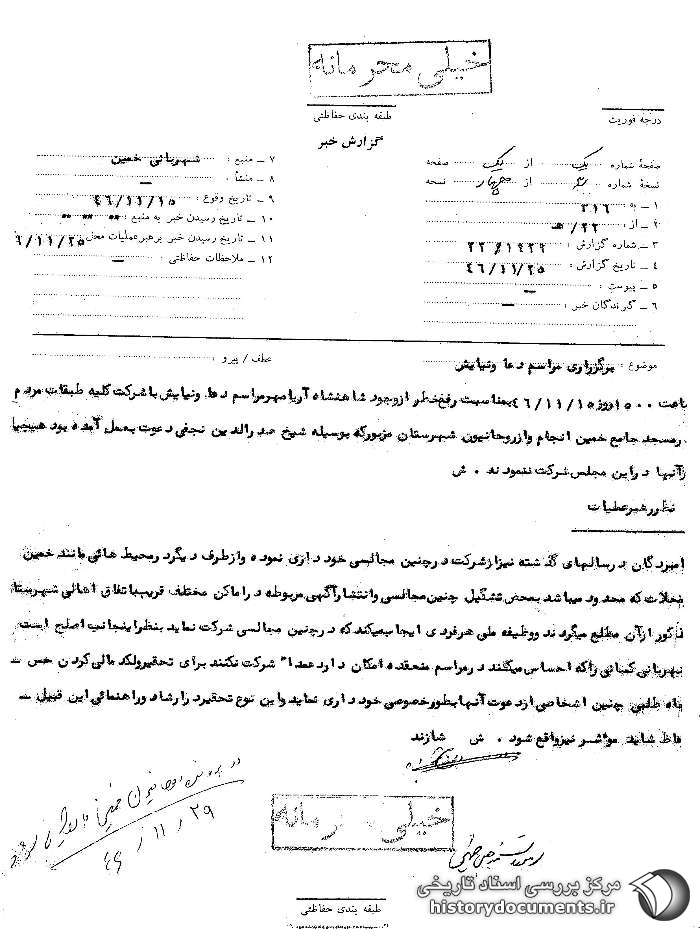 خیلی محرمانه
درجه فوریت
طبقه بندی حفاظتی
گزارش خبر
صفحهٔ شماره یک از یک صفحه
نسخهٔ شماره از چهار نسخه
۱ ـ به : ۳۱۶
۲ ـ از : ۲۲/ هـ
۳ ـ شماره گزارش : ۲۲/۱۴۲۹
۴ ـ تاریخ گزارش : ۴۶/۱۱/۲۵
۵ ـ پیوست : ـ
۶ ـ گیرندگان خبر : ـ
۷ ـ منبع : شهربانی خمین
۸ ـ منشأ : ـ
۹ ـ تاریخ وقوع : ۴۶/۱۱/۱۵
۱۰ ـ تاریخ رسیدن خبر به منبع :
۱۱ ـ تاریخ رسیدن خبر برهبر عملیات محلی ۶/۱۱/۲۵
۱۲ ـ ملاحظات حفاظتی : ـ
موضوع : برگزاری مراسم دعا ونیایش
عطف / پیرو :
اعت ۱۵۰۰روز ۴۶/۱۱/۱۵بمناسبت رفع خطر ازوجود شاهنشاه آریامهرمراسم دعا ونیایش باشرکت کلیه طبقات مردم
رمسجد جامع خمین انجام وازروحانیون شهرستان مزبورکه بوسیله شیخ صدرالدین نجفی دعوت بعمل آمده بود هیچیک
زآنها دراین مجلس شرکت ننمودند . ش
نظررهبرعملیات
امبردگان درسالهای گذشته نیزازشرکت درچنین مجالسی خودداری نموده وازطرف دیگردرمحیط هائی مانند خمین
محلات که محدود میباشد بمحض تشکیل چنین مجالسی وانتشارآگهی مربوطه دراماکن مختلف قریب باتفاق اهالی شهرستا
ذکورازآن مطلع میگردند ووظیفه ملی هرفردی ایجاب میکند که درچنین مجالسی شرکت نماید بنظراینجانب اصلح است
شهربانی کسانی راکه احساس میکنند درمراسم منعقده امکان دارد عمدا" شرکت نکنند برای تحقیرولکدمالی کردن حس ـ
جاه طلبی چنین اشخاصی ازدعوت آنهابطورخصوصی خودداری نماید واین نوع تحقیردرارشاد وراهنمائی این قبیل ـ
شاید مواثر نیزواقع شود . ش شازند
۴۶/۱۱/۲۹
خیلی محرمانه
طبقه بندی حفاظتی
مرکز بررسی اسناد تاریخی
historydocuments.ir